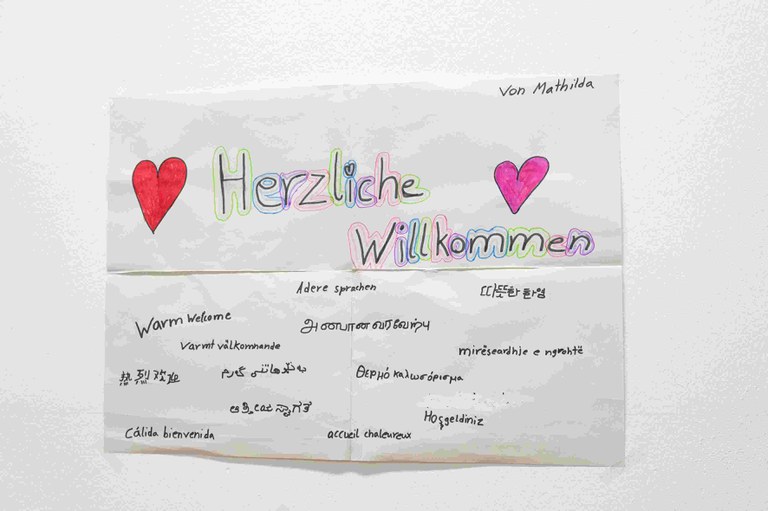 Von Mathilda
Herzliche
Willkommen
Adere sprachen
Warm Welcome
Varmt välkomnande
mirëseardhje e ngrohtë
热烈欢迎
Θερμό καλωσόρισμα
Hoşgeldiniz
Cálida bienvenida
accueil chaleureux